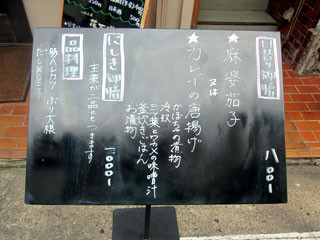 日替り御膳 八〇〇
★麻婆茄子
又は
★カレイの唐揚げ
かぼちゃの煮物
冷奴
玉葱とワカメの味噌汁
釜炊きごはん
お漬物
にしき御膳 一、〇〇〇
主菜が二品とつきます
一品料理
ヘレカツ、ぶり大根